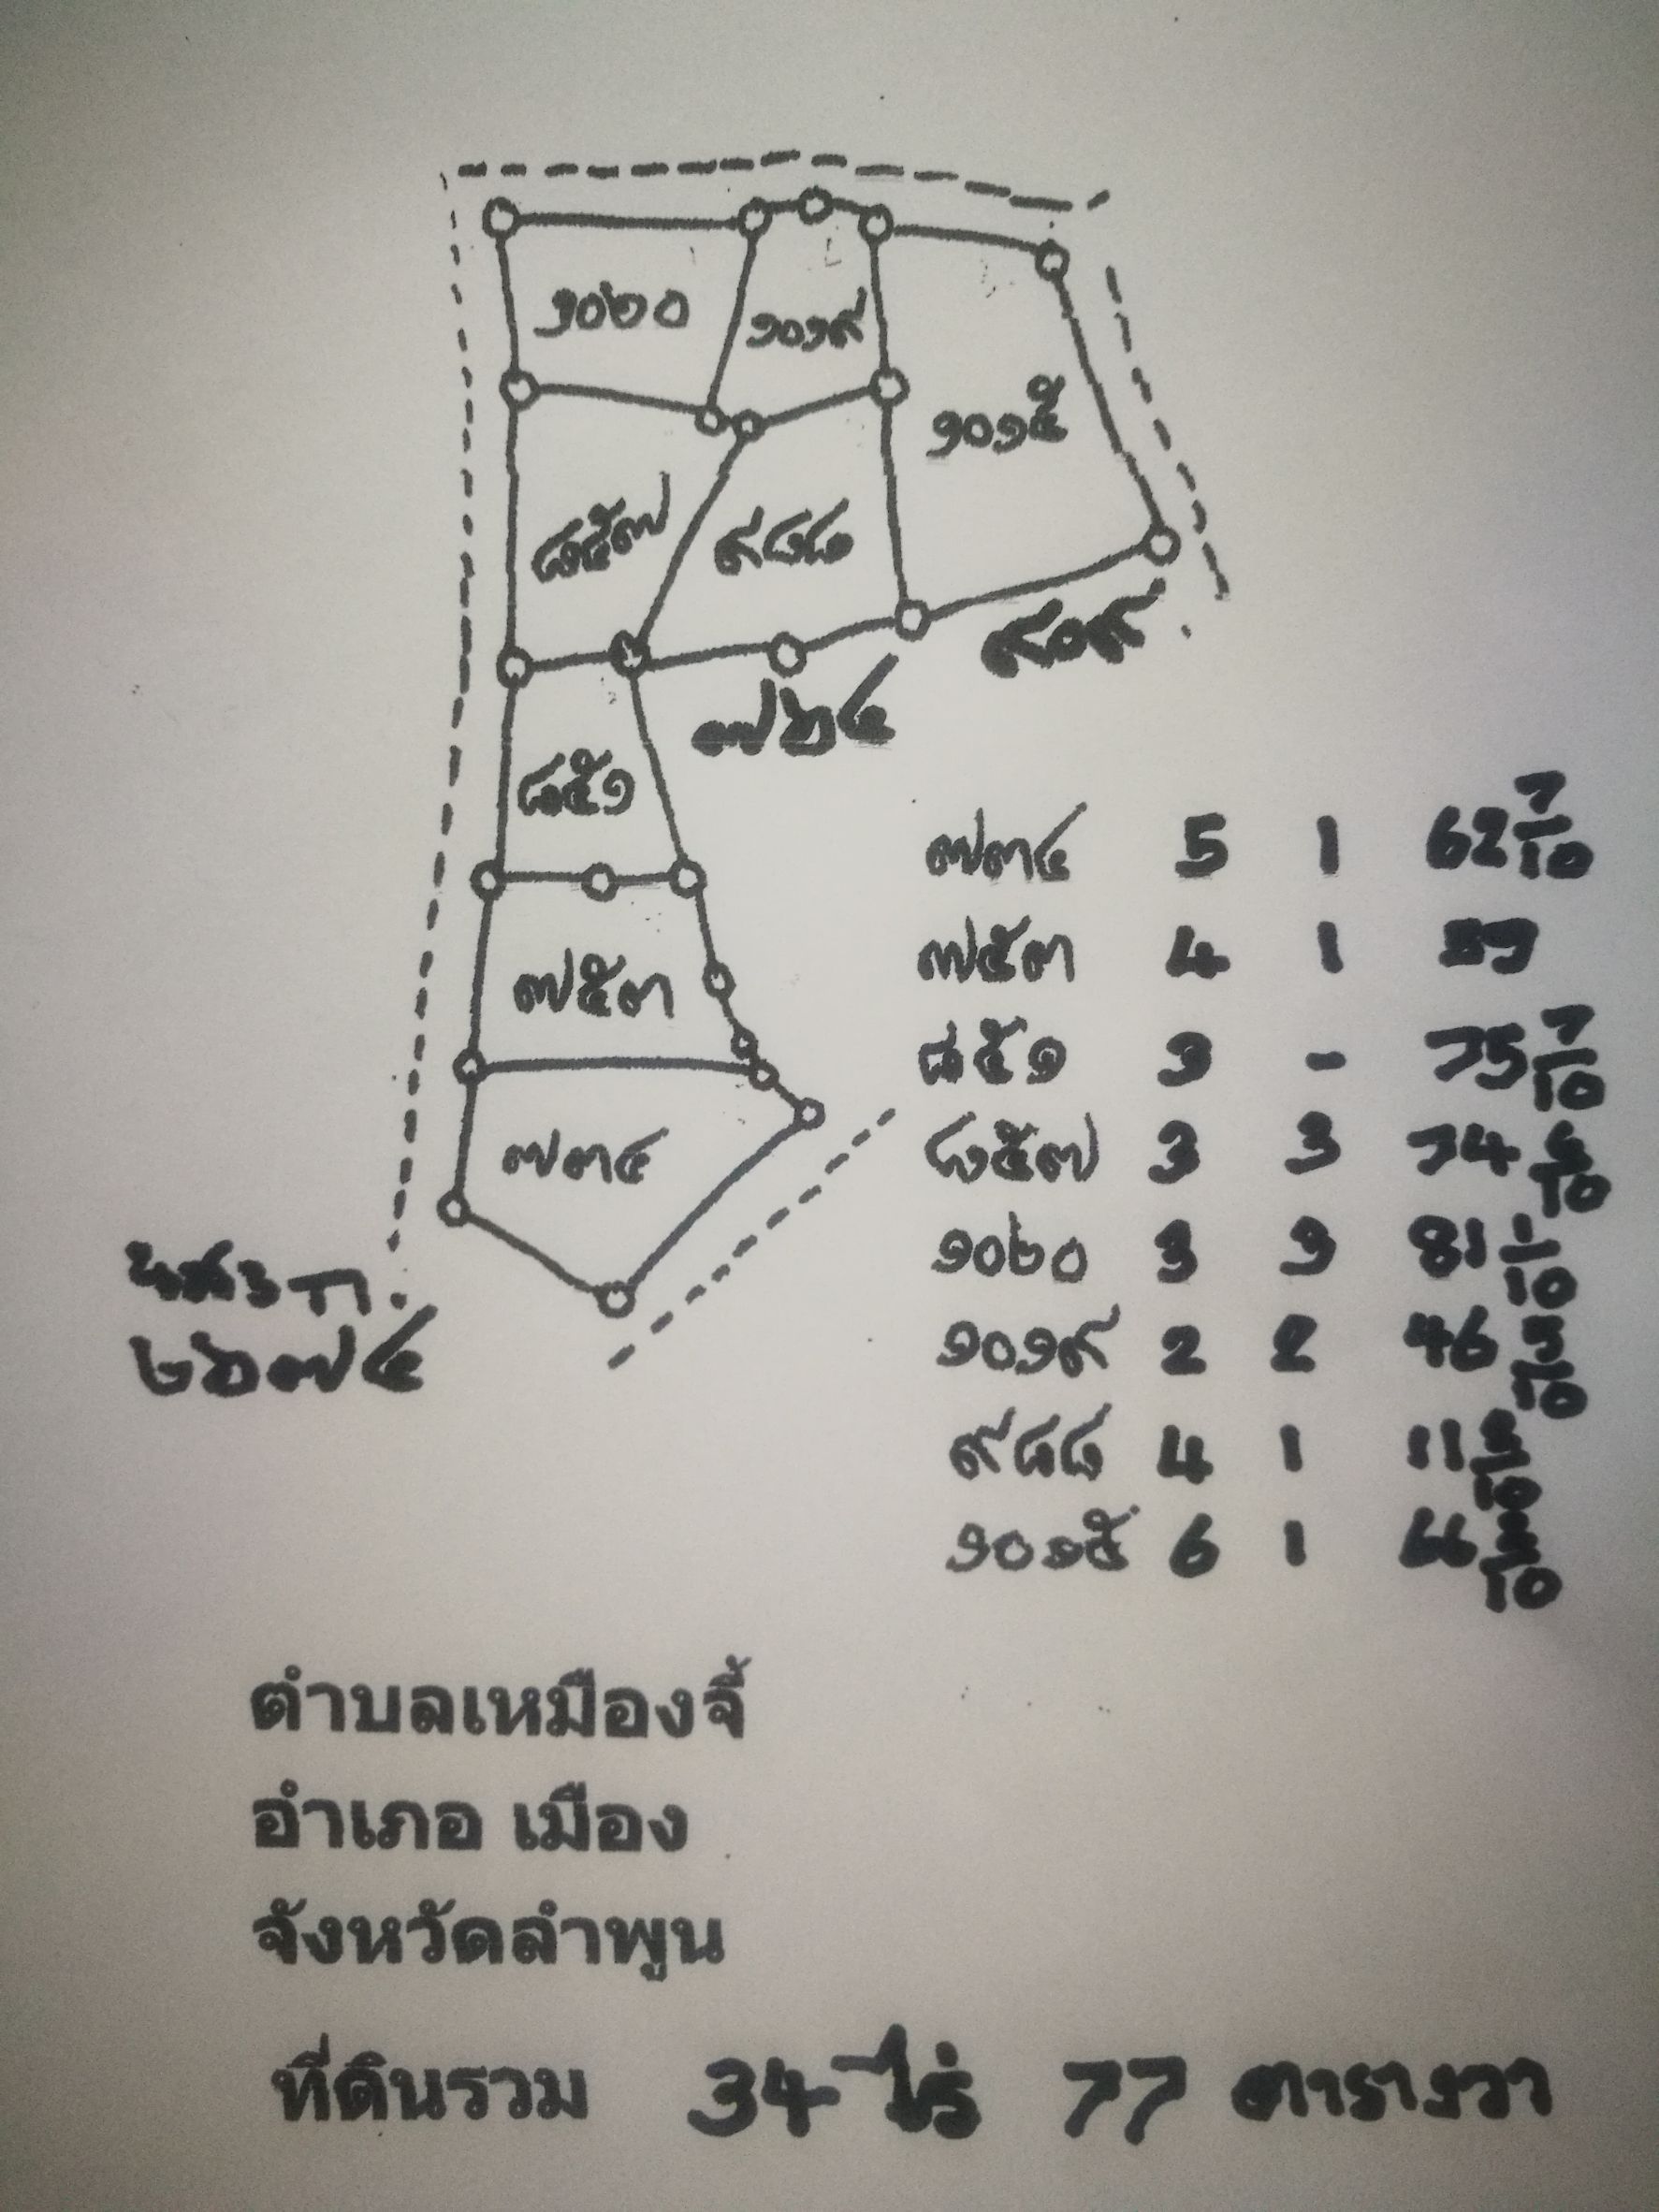 ๑๐๒๐
๑๐๑๙
๑๐๑๕
๘๕๗
๙๘๘
๙๐๙
๗๖๔
๘๕๑
๗๕๓
๗๓๔
๒๖๗๔
๗๓๔ 5 1 62 7/10
๗๕๓ 4 1
๘๕๑ 3 - 75 7/10
๘๕๗ 3 3 74
๑๐๒๐ 3 3 81 1/10
๑๐๑๙ 2 2 46
๙๘๘ 4 1 11
๑๐๑๕ 6 1
ตำบลเหมืองจี้
อำเภอ เมือง
จังหวัดลำพูน
ที่ดินรวม 34 ไร่ 77 ตารางวา